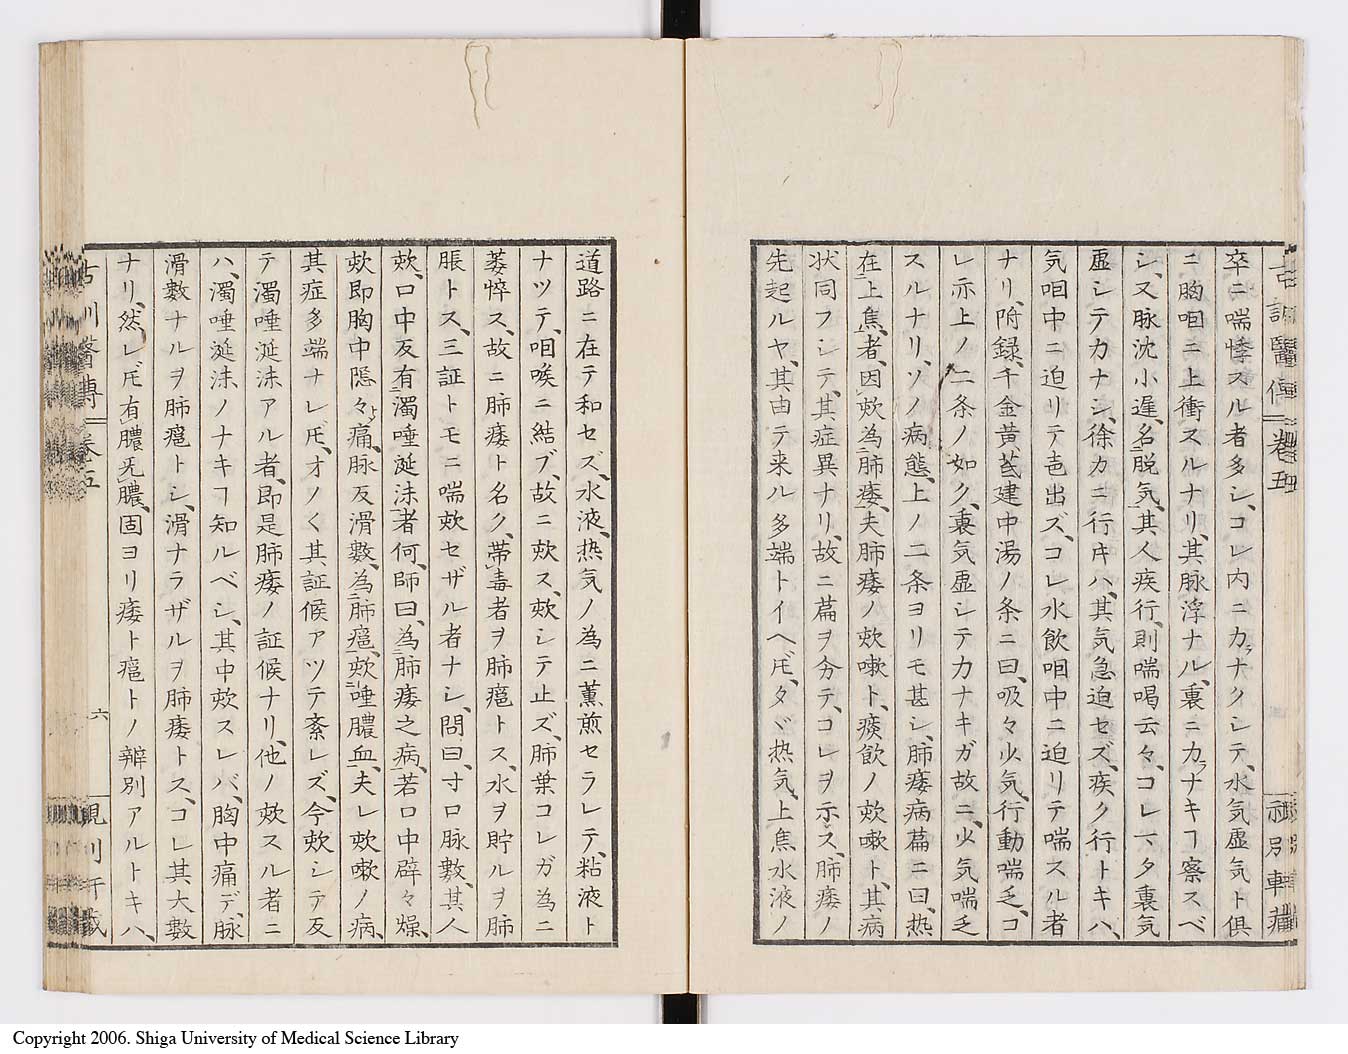 卷五
軒藏
卒ニ喘悸スル者多シ、コレ内ニカラナクシテ、水気虚気ト俱
ニ胸咽ニ上衝スルナリ、其脉浮ナル、裏ニカラナキヿ察スベ
シ、又脉沈小遲、名脱気、其人疾行、則喘喝云々、コレマタ裏気
虚シテカナシ、徐カニ行キハ、其気急迫セズ、疾ク行トキハ、
気咽中ニ迫リテ壱出ズ、コレ水飲咽中ニ迫リテ喘スル者
ナリ、附録、千金黄芪建中湯ノ条ニ曰、吸々少気、行動喘乏、コ
レ亦上ノ二条ノ如ク、裏気虚シテ力ナキガ故ニ、少気喘乏
スルナリ、ソノ病態、上ノ二条ヨリモ甚シ、肺痿病篇ニ曰、热
在二上焦一者、因欬為二肺痿一、夫肺痿ノ欬嗽ト、痰飲ノ欬嗽ト、其病
状同フシテ、其症異ナリ、故ニ篇ヲ分テ、コレヲ示ス、肺痿ノ
先起ルヤ、其由テ来ル多端トイヘ𪜈、タヾ热気、上焦水液ノ
道路ニ在テ和セズ、水液、热気ノ為ニ薫煎セラレテ、粘液ト
ナツテ、咽喉ニ結ブ、故ニ欬ス、欬シテ止ズ、肺葉コレガ為ニ
萎悴ス、故ニ肺痿ト名ク、帯毒者ヲ肺癰トス、水ヲ貯ルヲ肺
脹トス、三証トモニ喘欬セザル者ナシ、問曰、寸口脉數、其人
欬、口中反有二濁唾涎沫一者何、師曰、為二肺痿之病一、若口中辟々燥、
欬即胸中隠々痛、脉反滑數、為二肺癰一、欬二唾膿血一、夫レ欬嗽ノ病、
其症多端ナレ𪜈、オノ〱其証候アツテ紊レズ、今欬シテ反
テ濁唾涎沫アル者、即是肺痿ノ証候ナリ、他ノ欬スル者ニ
ハ、濁唾涎沫ノナキヿ知ルベシ、其中欬スレバ、胸中痛デ、脉
滑數ナルヲ肺癰トシ、滑ナラザルヲ肺痿トス、コレ其大數
ナリ、然レ𪜈、有膿无膿、固ヨリ痿ト癰トノ辨別アルトキハ、
卷五
六